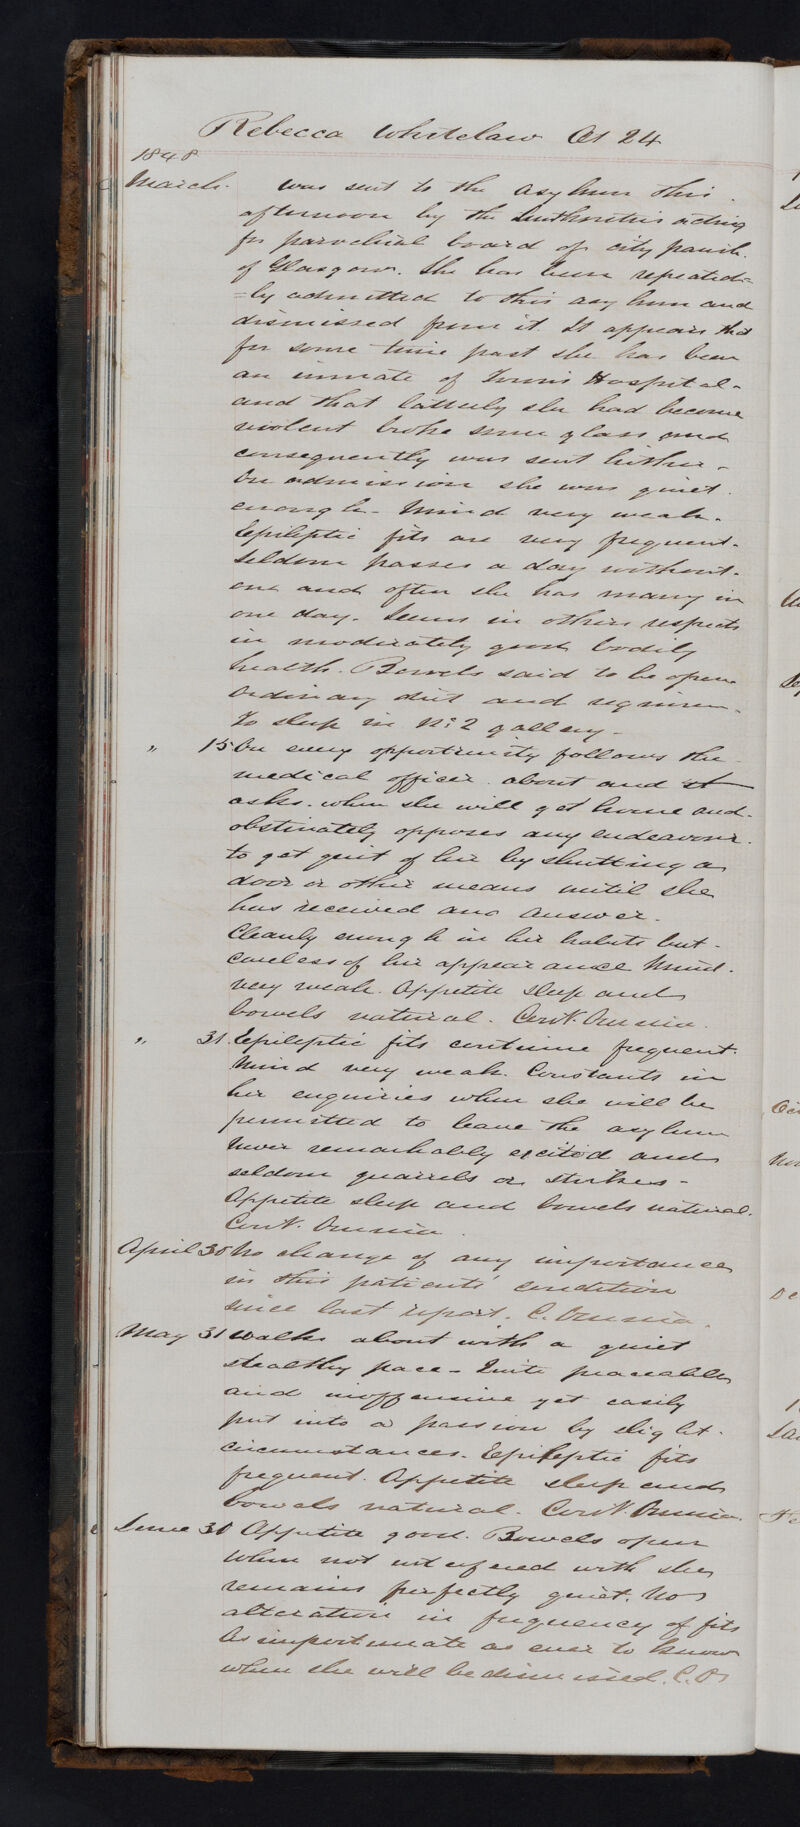 Rebecca Whitelaw Æt 24
1848
March. Was sent to the Asylum this
afternoon by the Authorities acting
for parochial board of city parish.
of Glasgow. She has been repeated=
=ly admitted to this asylum and
dismissed from it. It appears that
for some time past she has been
an inmate of Town's Hospital-
and that latterly she had become
violent broke some glass and
consequently was sent hither-
On admission she was quiet
enough- Mind very weak.
Epileptic fits are very frequent-
Seldom passes a day without-
one and often she has many in
one day. Seems in other respects
in moderately good bodily
health. Bowels said to be open
Ordinary diet and regimen-
To sleep in No 2 gallery-
" 15 On every opportunity follows the
medical officer about and
asks when she will get home and-
obstinately opposes any endeavour
to get quit of her by shutting a
door or other means until she
has received ane answer.
Cleanly enough in her habits but-
careless of her appearance Mind.
very weak. Appetite sleep and
bowels natural. Cont. Omnia.
" 31. Epileptic fits continue frequent.
Mind very weak. Constants in
her enquiries when she will be
permitted to leave the asylum
Never remarkably excited and
seldom quarrels or strikes-
Appetite sleep and bowels natural.
Cont. Omnia.
April 30 No change of any importance
in this patients' condition
since last report. C. Omnia.
May 31 Walks about with a quiet
stealthy pace- Quite peaceable
and inoffensive yet easily
put into a passion by slight-
circumstances. Epileptic fits
frequent. Appetite sleep and
bowels natural. Cont. Omnia.
June 30 Appetite good. Bowels open
When not interfered with she
remains perfectly quiet. No
alteration in frequency of fits
As importunate as ever to know
when she will be dismissed. C. O